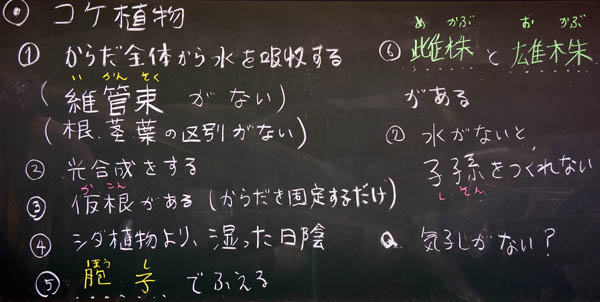 ⊙ コケ植物
① からだ全体から水を吸収する
い かん そく
(維管束 がない)
(根.茎葉の区別がない)
② 光合成をする
か こん
③ 仮根がある(からだを固定するだけ)
④ シダ植物より、湿った日陰
ほう し
⑤ 胞子でふえる
め かぶ お かぶ
⑥ 雌株と雄株
がある
⑦ 水がないと、
子孫をつくれない
し そん
Q 気孔がない?